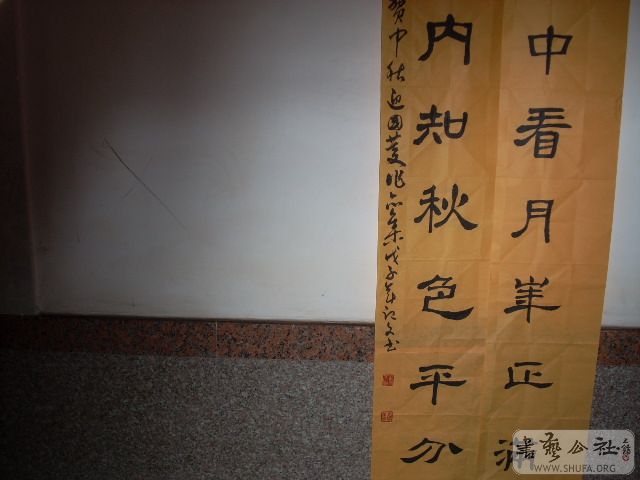 中看月正
内知秋色平分
贺中秋迎国庆作戊子年文书
書藝公社
WWW.SHUFA.ORG